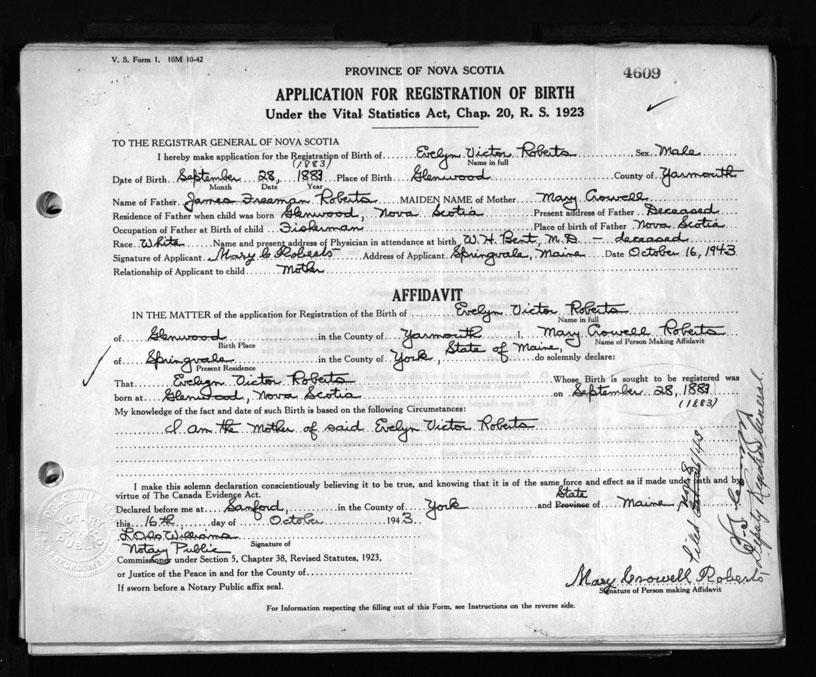 V. S. Form 1. 10M 10-42
PROVINCE OF NOVA SCOTIA
4609
APPLICATION FOR REGISTRATION OF BIRTH
Under the Vital Statistics Act, Chap. 20, R. S. 1923
TO THE REGISTRAR GENERAL OF NOVA SCOTIA
I hereby make application for the Registration of Birth of Evelyn Victor Roberts Sex Male
(1883) Name in full
Date of Birth September 28, 1883 Place of Birth Glenwood County of Yarmouth
Month Date Year
Name of Father James Freeman Roberts MAIDEN NAME of Mother Mary Crowell
Residence of Father when child was born Glenwood, Nova Scotia Present address of Father Deceased
Occupation of Father at Birth of child Fisherman Place of birth of Father Nova Scotia
Race White Name and present address of Physician in attendance at birth W. H. Bent, M.D – deceased
Signature of Applicant Mary C Roberts Address of Applicant Springvale, Maine Date October 16, 1943
Relationship of Applicant to child Mother
AFFIDAVIT
IN THE MATTER of the application for Registration of the Birth of Evelyn Victor Roberts
Name in full
of Glenwood in the County of Yarmouth I, Mary Crowell Roberts
Birth Place Name of Person Making Affidavit
of Springvale in the County of York, State of Maine, do solemnly declare:
Present Residence
That Evelyn Victor Roberts Whose Birth is sought to be registered was
born at Glenwood, Nova Scotia on September 28, 1883
(1883)
My knowledge of the fact and date of such Birth is based on the following Circumstances:
I am the Mother of said Evelyn Victor Roberts
I make this solemn declaration conscientiously believing it to be true, and knowing that it is of the same force and effect as if made under oath and by
virtue of The Canada Evidence Act.
State
Declared before me at Sanford, in the County of York and Province of Maine
this 16th day of October 1943
Williams
Signature of
Notary Public
Commissioner under Section 5, Chapter 38, Revised Statutes, 1923,
or Justice of the Peace in and for the County of
If sworn before a Notary Public affix seal.
Mary Crowell Roberts
Signature of Person making Affidavit
For Information respecting the filling out of this Form, see Instructions on the reverse side.
Filed
Deputy Registrar General.
NOTARY
PUBLIC